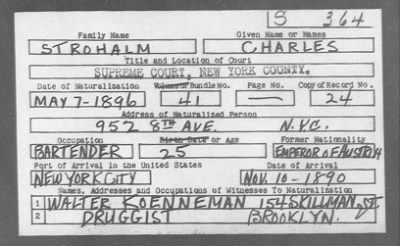 S 364
Family Name Given Name or Names
STROHALM CHARLES
Title and Location of Court
SUPREME COURT, NEW YORK COUNTY.
Date of Naturalization Volume or Bundle No. Page No. Copy of Record No.
MAY 7-1896 41 — 24
Address of Naturalized Person
952 8TH AVE. N.Y.C.
Occupation Birth Date or Age Former Nationality
BARTENDER 25 EMPEROR OF AUSTRIA
Port of Arrival in the United States Date of Arrival
NEW YORK CITY NOV. 10-1890
Names, Addresses and Occupations of Witnesses To Naturalization
1 WALTER KOENNEMAN 154 SKILLMAN, ST.
2 DRUGGIST BROOKLYN.